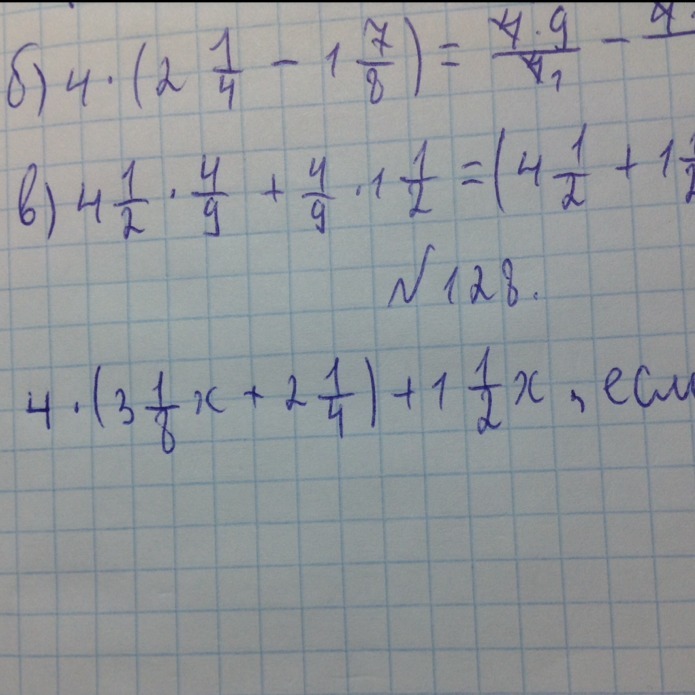 б) 4 · (2 1/4 − 1 7/8) = 4·9/4₁ − 4·
в) 4 1/2 · 4/9 + 4/9 · 1 1/2 = (4 1/2 + 1 1/2
№ 128.
4 · (3 1/8 x + 2 1/4) + 1 1/2 x, если